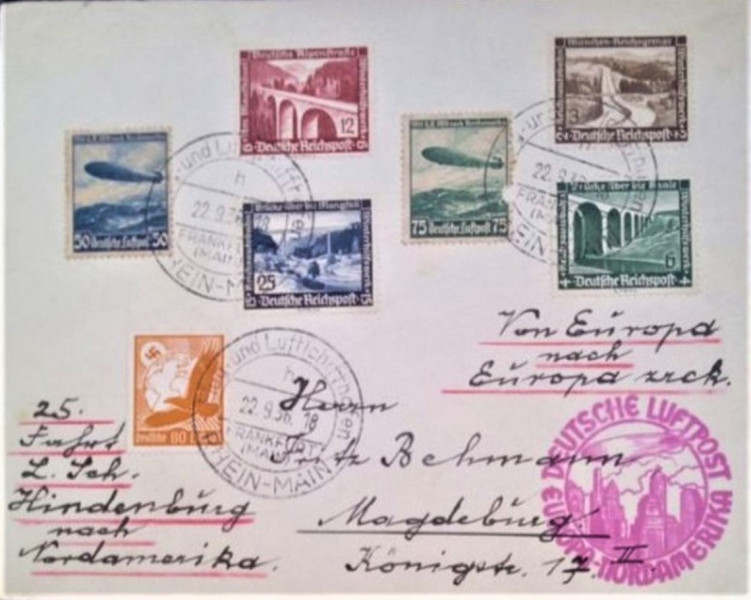 Deutsche Alpenstraße
12
Deutsche Reichspost
München-Reichsgrenze
3
Deutsche Reichspost
50 Deutsche Luftpost 50
Brücke über die Mangfall
25
Deutsche Reichspost
75 Deutsche Luftpost 75
6
Deutsche Reichspost
22.9.36
FRANKFURT
(MAIN)
RHEIN-MAIN
22.9.36
FRANKFURT
(MAIN)
Deutsche 80
h
22.9.36. 18
FRANKFURT
(MAIN)
RHEIN-MAIN
Von Europa
nach
Europa zrck.
25.
Fahrt
L. Sch.
Hindenburg
nach
Nordamerika.
Herrn
Fritz Behmann
Magdeburg.
Königstr. 17 II.
DEUTSCHE LUFTPOST
EUROPA-NORDAMERIKA